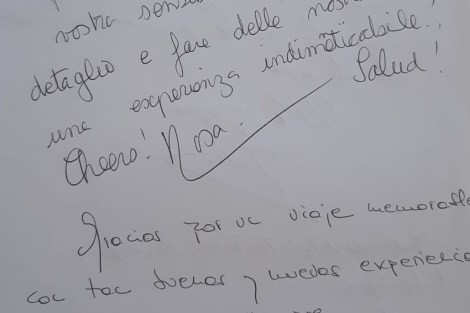 vostra
detaglio e fare delle
una experienza indimeticabile..
Cheers! Nsa. Salud!
Gracias por uc viaje memorable
coc tac buenas y nuevas experiencia